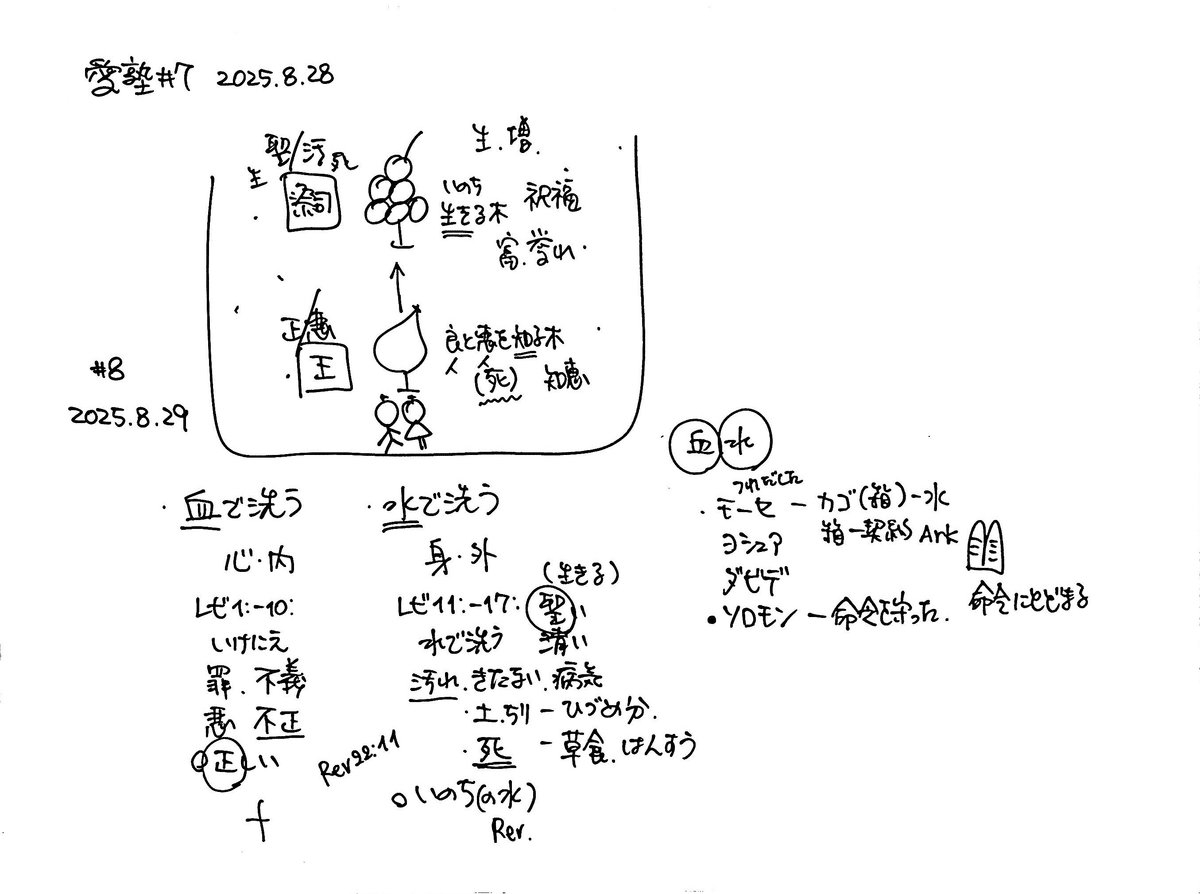 愛塾#7 2025.8.28
聖/汚 死
生
祭司
生.増.
いのち
生きる木 祝福
富.誉れ.
正/悪
王
良と悪を知る木
人 人
(死) 知恵
#8
2025.8.29
・血で洗う
心・内
レビ1:-10:
いけにえ
罪.不義
悪 不正
○正しい
十
Rev22:11
・水で洗う
身・外
(生きる)
レビ11:-17: 聖い
水で洗う 清い
汚れ.きたない.病気
・土.ちり-ひづめ分.
・死 -草食.はんすう
○いのち(の水)
Rev.
血 水
つれだした
・モーセ-カゴ(箱)-水
箱-契約 Ark
ヨシュア
ダビデ
・ソロモン-命令を守った.
命令にとどまる